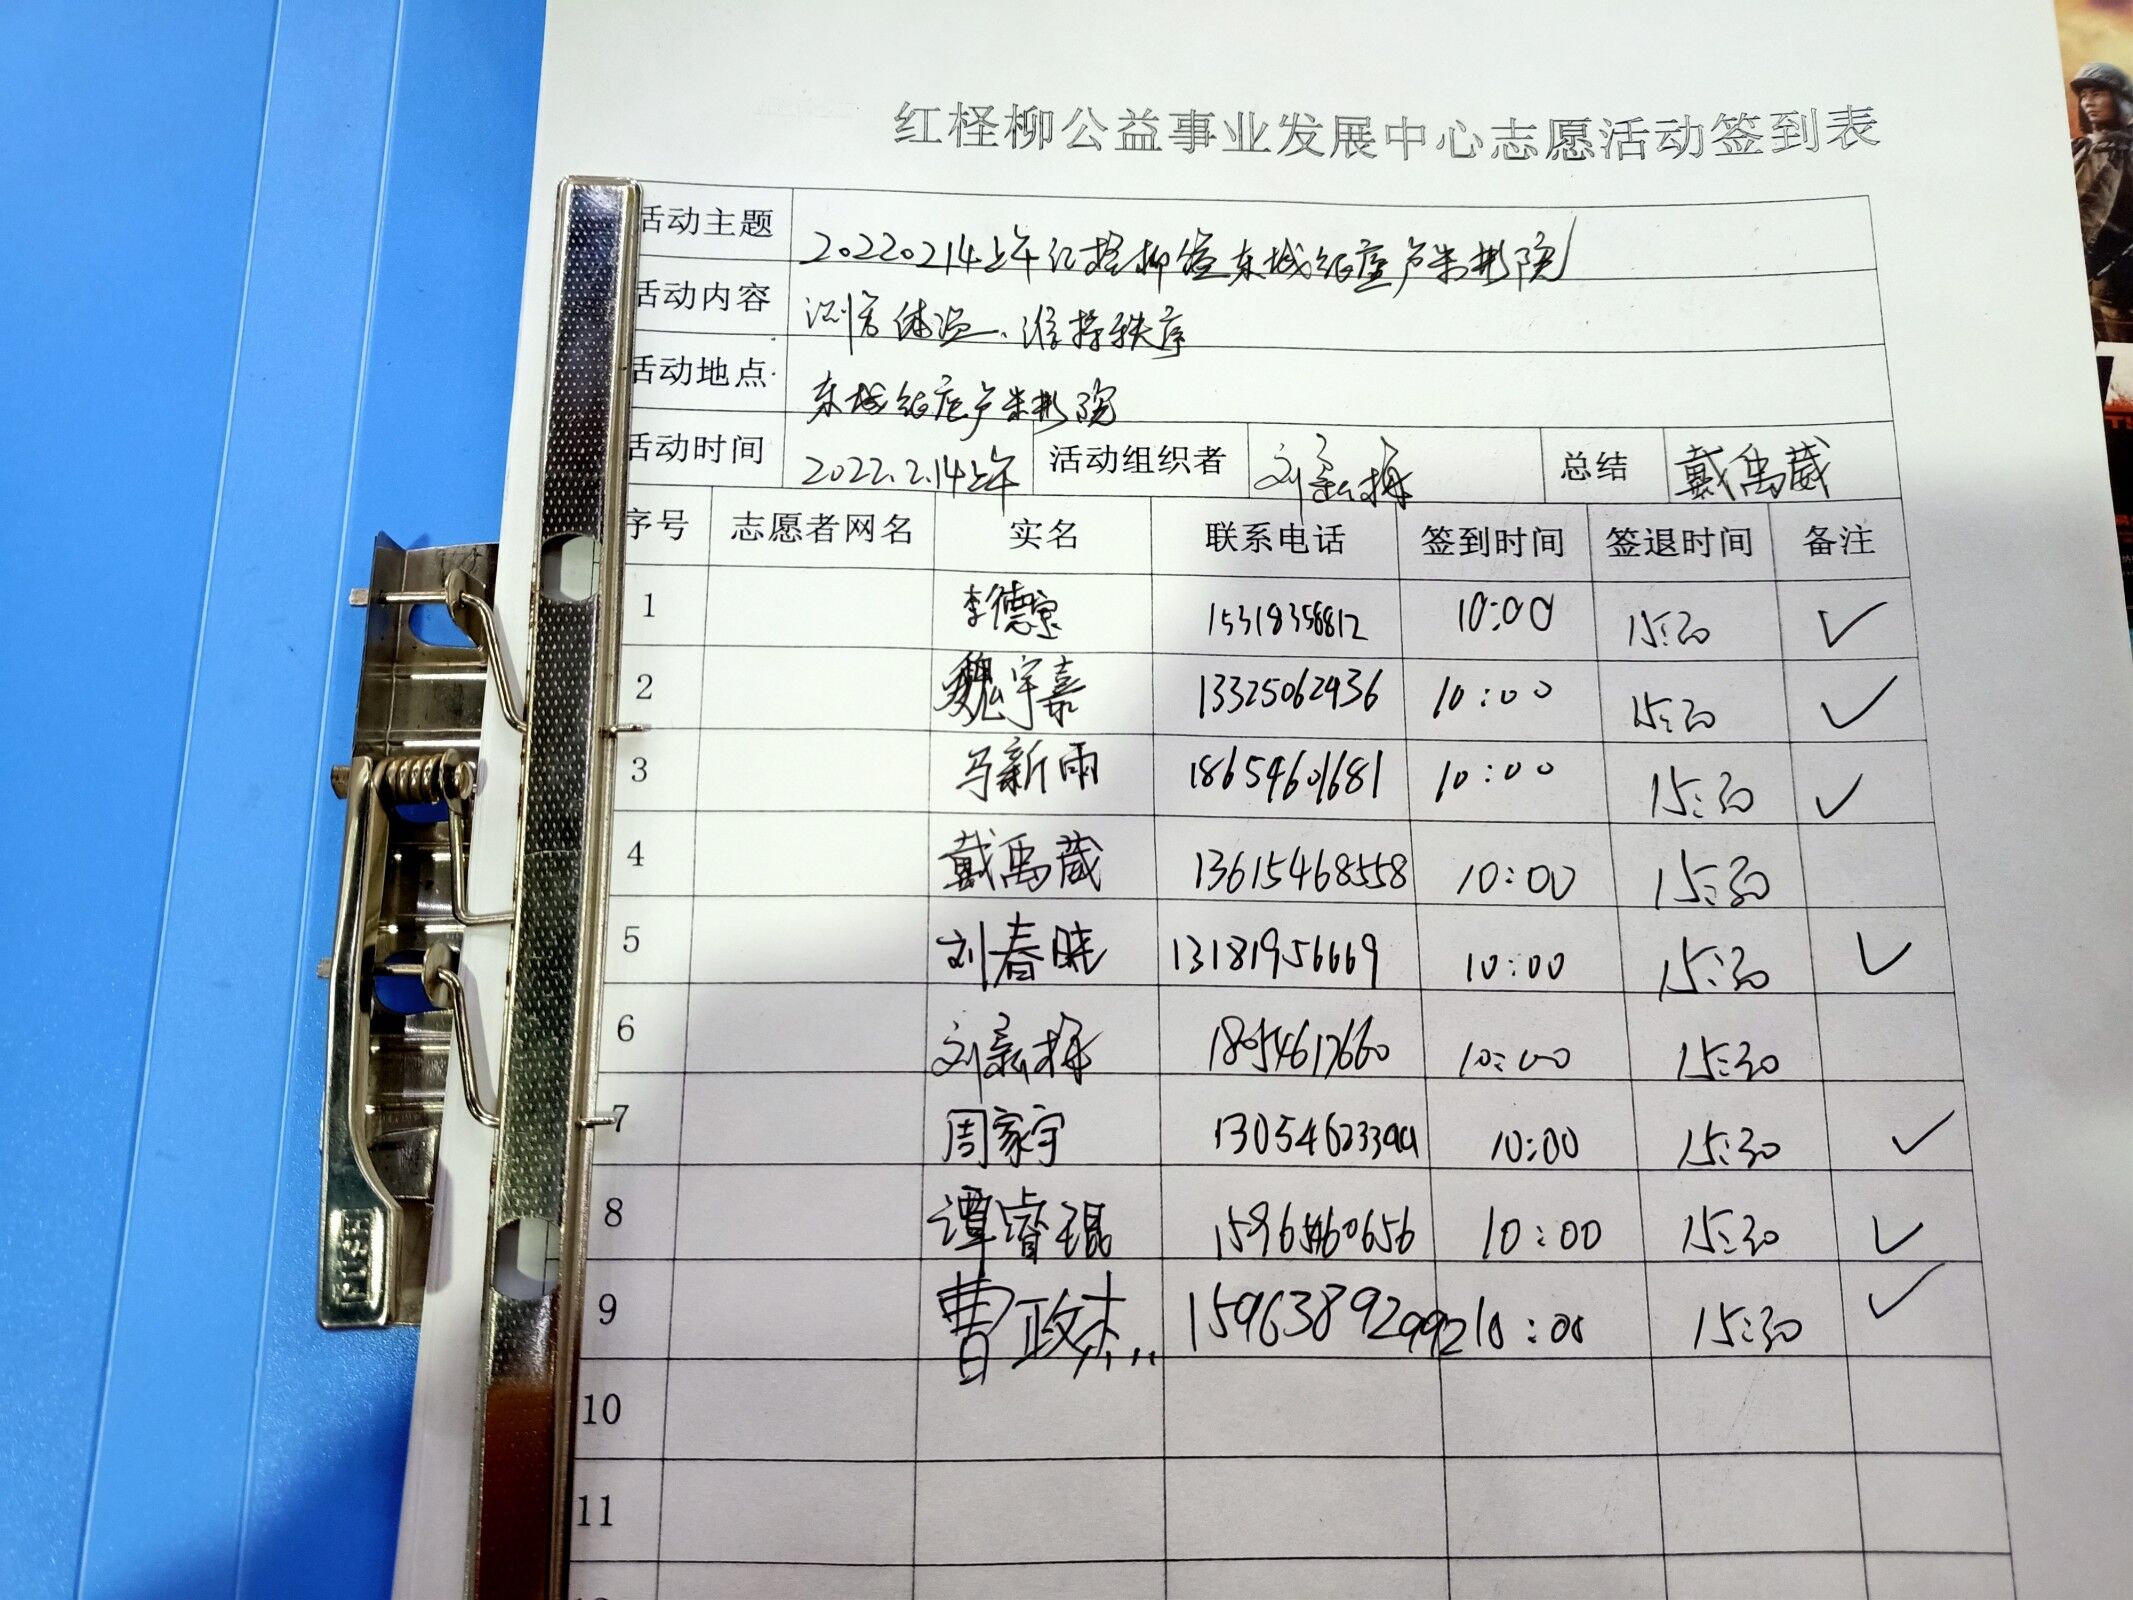 红柽柳公益事业发展中心志愿活动签到表
活动主题 20220214上午红柽柳 东城 院
活动内容 测 体温、维持秩序
活动地点 东城 院
活动时间 2022.2.14上午 活动组织者 刘 总结 戴禹葳
序号 志愿者网名 实名 联系电话 签到时间 签退时间 备注
1 李德 15318356812 10:00 15:30 ✓
2 魏宇嘉 13325062936 10:00 15:30 ✓
3 马新雨 18654601681 10:00 15:30 ✓
4 戴禹葳 13615468558 10:00 15:30
5 刘春晓 13181956669 10:00 15:30 ✓
6 刘 18054617660 10:00 15:30
7 周家宇 10:00 15:30 ✓
8 谭睿琨 15965460656 10:00 15:30 ✓
9 曹政杰 15963892992 10:00 15:30 ✓
10
11
PUSH